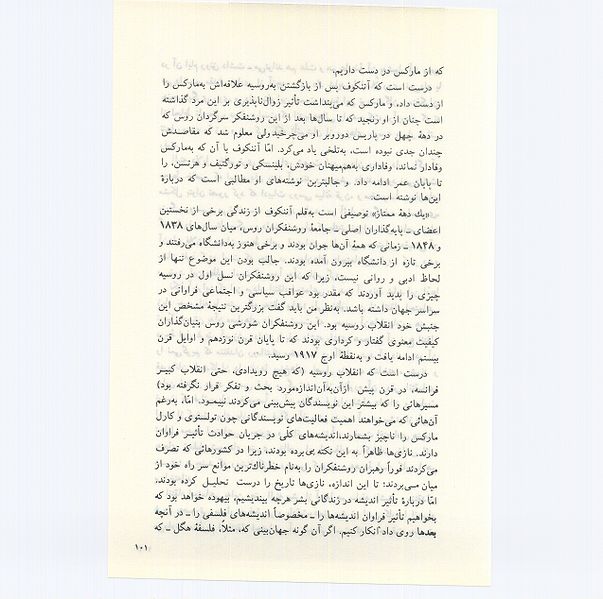 که از مارکس در دست داریم.
درست است که آننکوف پس از بازگشتن به‌روسیه علاقه‌اش به‌مارکس را
از دست داد، و مارکس که می‌پنداشت تأثیر زوال‌ناپذیری بر این مرد گذاشته
است چنان از او رنجید که تا سال‌ها بعد از این روشنفکر سرگردان روس که
در دههٔ چهل در پاریس دوروبر او می‌چرخیدولی معلوم شد که مقاصدش
چندان جدی نبوده است، به‌تلخی یاد می‌کرد. امّا آننکوف یا آن که به‌مارکس
وفادار نماند، وفاداری به‌هم‌میهنان خودش، بلینسکی و تورگنیف و هرتسن، را
تا پایان عمر ادامه داد. و جالبترین نوشته‌های او مطالبی است که دربارهٔ
این‌ها نوشته است.
«یك دههٔ ممتاز» توصیفی است به‌قلم آننکوف از زندگی برخی از نخستین
اعضای ــ پایه‌گذاران اصلی ــ جامعهٔ روشنفکران روس، میان سال‌های ۱۸۳۸
و ۱۸۴۸ ــ زمانی که همهٔ آن‌ها جوان بودند و برخی هنوز به‌دانشگاه می‌رفتند و
برخی تازه از دانشگاه بیرون آمده بودند. جالب بودن این موضوع تنها از
لحاظ ادبی و روانی نیست، زیرا که این روشنفکران نسل اول در روسیه
چیزی را پدید آوردند که مقدر بود عواقب سیاسی و اجتماعی فراوانی در
سراسر جهان داشته باشد. به‌نظر من باید گفت بزرگترین نتیجهٔ مشخص این
جنبش خود انقلاب روسیه بود. این روشنفکران شورشی روس بنیان‌گذاران
کیفیت معنوی گفتار و کرداری بودند که تا پایان قرن نوزدهم و اوایل قرن
بیستم ادامه یافت و به‌نقطهٔ اوج ۱۹۱۷ رسید.
درست است که انقلاب روسیه (که هیچ رویدادی، حتی انقلاب کبیر
فرانسه، در قرن پیش ازآن‌به‌آن‌اندازه‌مورد بحث و تفکر قرار نگرفته بود)
مسیرهائی را که بیشتر این نویسندگان پیش‌بینی می‌کردند نپیمود. امّا، به‌رغم
آن‌هائی که می‌خواهند اهمیت فعالیت‌های نویسندگانی چون تولستوی و کارل
مارکس را ناچیز بشمارند،اندیشه‌های کلّی در جریان حوادث تأثیر فراوان
دارند. نازی‌ها ظاهراً به این نکته پی‌برده بودند، زیرا در کشورهائی که تصرف
می‌کردند فوراً رهبران روشنفکران را به‌نام خطرناك‌ترین موانع سر راه خود از
میان می‌بردند؛ تا این اندازه، نازی‌ها تاریخ را درست تحلیل کرده بودند،
امّا دربارهٔ تأثیر اندیشه در زندگانی بشر هرچه بیندیشیم، بیهوده خواهد بود که
بخواهیم تأثیر فراوان اندیشه‌ها را ــ مخصوصاً اندیشه‌های فلسفی را ــ در آنچه
بعدها روی داد انکار کنیم. اگر آن گونه جهان‌بینی که، مثلا، فلسفهٔ هگل ــ که
۱۰۱